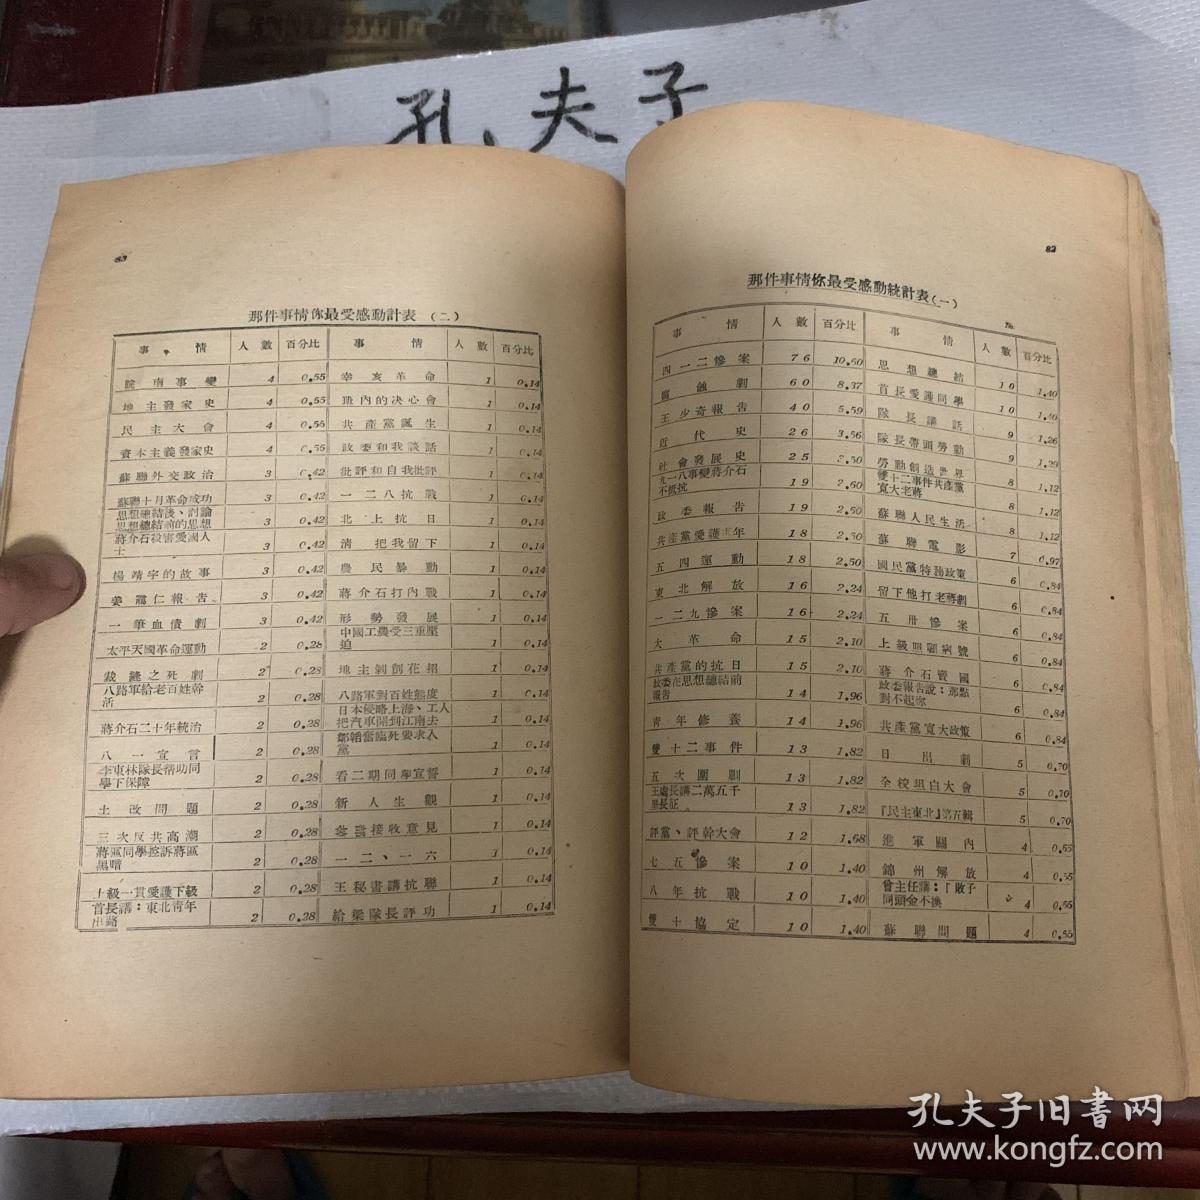 孔夫子
82
那件事情你最受感動統計表(一)
事情 人數 百分比 事情 人數 百分比
四一二慘案 76 10.60 思想總結 10 1.40
腐蝕劇 60 8.37 首長愛護同學 10 1.40
王少奇報告 40 5.59 隊長講話 9 1.26
近代史 26 3.56 隊長帶頭勞動 9 1.29
社會發展史 25 2.50 勞動創造世界 8 1.12
九一八事變蔣介石不抵抗 19 2.60 雙十二事件共產黨寬大老蔣 8 1.12
政委報告 19 2.50 蘇聯人民生活 8 1.12
共產黨愛護 年 18 2.50 蘇聯電影 7 0.97
五四運動 18 2.50 國民黨特務政策 6 0.84
東北解放 16 2.24 留下他打老蔣劇 6 0.84
一二九慘案 16 2.24 五卅慘案 6 0.84
大革命 15 2.10 上級照顧病號 6 0.84
共產黨的抗日 15 2.10 蔣介石賣國 6 0.84
政委在思想總結前報告 14 1.96 政委報告說:那點對不起你 6 0.84
青年修養 14 1.96 共產黨寬大政策 6 0.84
雙十二事件 13 1.82 日出劇 5 0.70
五次圍剿 13 1.82 全校坦白大會 5 0.70
王處長講二萬五千里長征 13 1.82 『民主東北』第五輯 5 0.70
評黨、評幹大會 12 1.68 進軍關內 4 0.55
七五慘案 10 1.40 錦州解放 4 0.55
八年抗戰 10 1.40 曾主任講:『敗子回頭金不換 4 0.55
雙十協定 10 1.40 蘇聯問題 4 0.55
83
那件事情你最受感動計表(二)
事情 人數 百分比 事情 人數 百分比
皖南事變 4 0.55 辛亥革命 1 0.14
地主發家史 4 0.55 班內的决心會 1 0.14
民主大會 4 0.55 共產黨誕生 1 0.14
資本主義發家史 4 0.55 政委和我談話 1 0.14
蘇聯外交政治 3 0.42 批評和自我批評 1 0.14
蘇聯十月革命成功 3 0.42 一二八抗戰 1 0.14
思想總結後、討論思想總結前的思想 3 0.42 北上抗日 1 0.14
蔣介石殺害愛國人士 3 0.42 清把我留下 1 0.14
楊靖宇的故事 3 0.42 農民暴動 1 0.14
姜靄仁報告 3 0.42 蔣介石打內戰 1 0.14
一筆血債劇 3 0.42 形勢發展 1 0.14
太平天國革命運動 2 0.28 中國工農受三重壓迫 1 0.14
裁縫之死劇 2 0.28 地主剝削花招 1 0.14
八路軍給老百姓幹活 2 0.28 八路軍對百姓態度 1 0.14
蔣介石二十年統治 2 0.28 日本侵略上海、工人把汽車開到江南去 1 0.14
八一宣言 2 0.28 鄒韜奮臨死要求入黨 1 0.14
李東林隊長帮助同學下保障 2 0.28 看二期同學宣誓 1 0.14
土改問題 2 0.28 新人生觀 1 0.14
三次反共高潮 2 0.28 接收意見 1 0.14
蔣區同學控訴蔣區黑暗 2 0.28 一二、一六 1 0.14
上級一貫愛護下級 2 0.28 王秘書講抗聯 1 0.14
首長講:東北青年出路 2 0.28 給梁隊長評功 1 0.14
孔夫子旧書网
www.kongfz.com